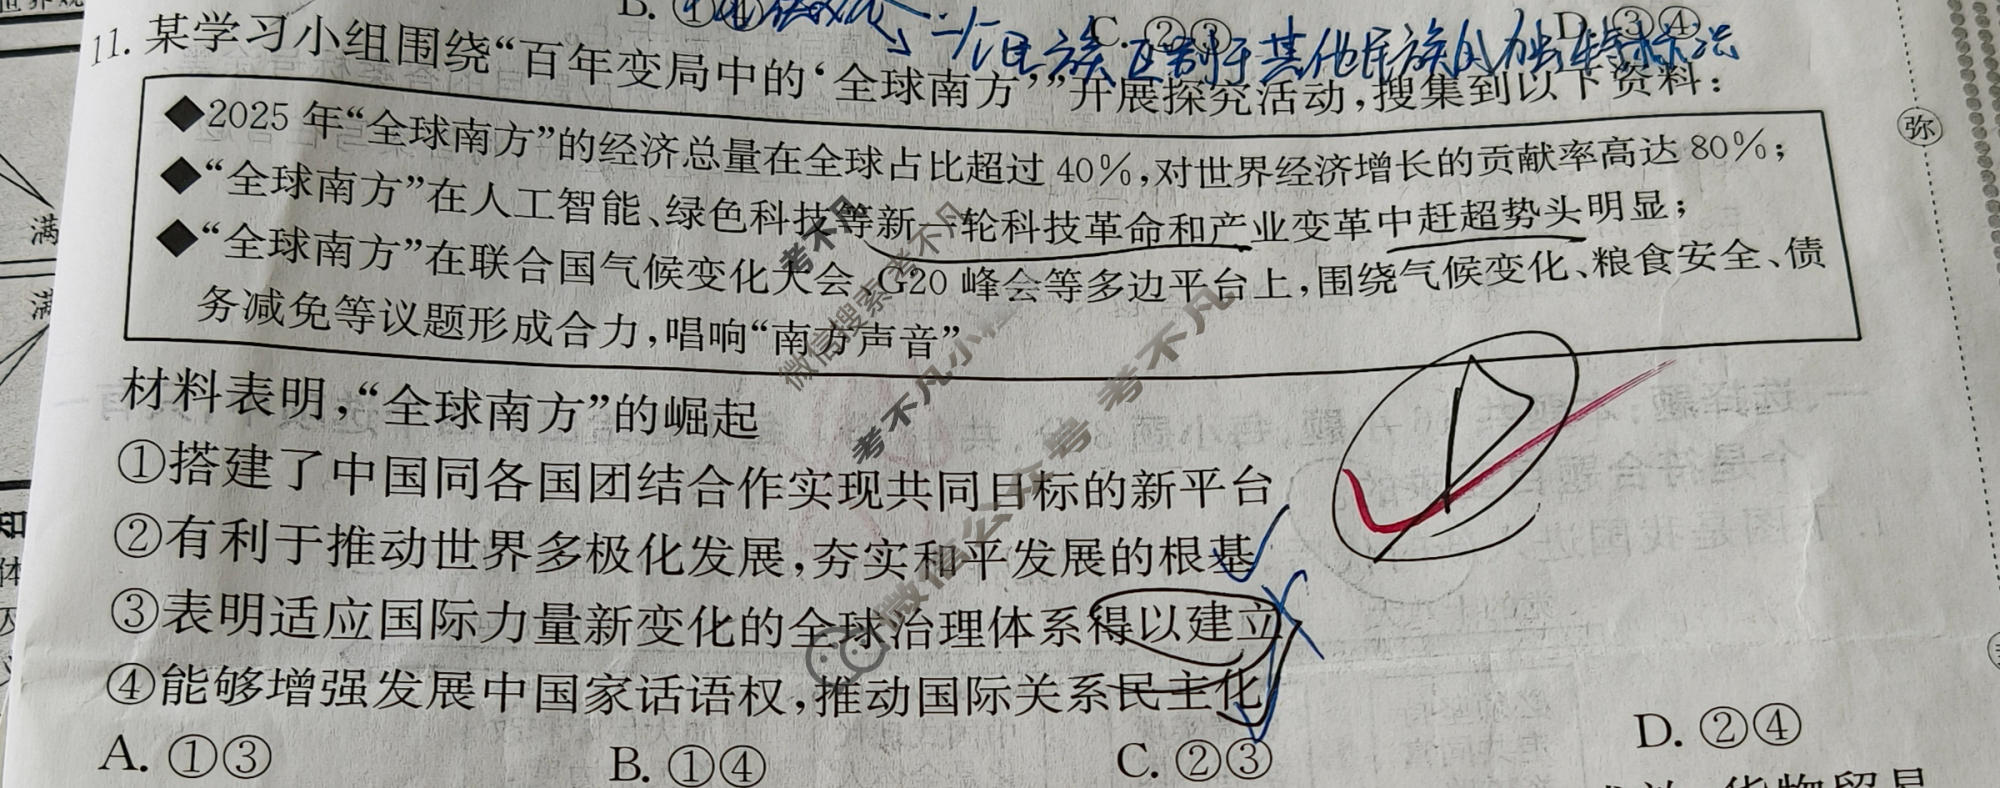 B. ①④ C. ②③ D. ③④
一个民族区别于其他民族的独特标识
11. 某学习小组围绕“百年变局中的‘全球南方’”开展探究活动,搜集到以下资料:
◆2025年“全球南方”的经济总量在全球占比超过40%,对世界经济增长的贡献率高达80%;
◆“全球南方”在人工智能、绿色科技等新一轮科技革命和产业变革中赶超势头明显;
◆“全球南方”在联合国气候变化大会、G20峰会等多边平台上,围绕气候变化、粮食安全、债
务减免等议题形成合力,唱响“南方声音”
材料表明,“全球南方”的崛起
①搭建了中国同各国团结合作实现共同目标的新平台
②有利于推动世界多极化发展,夯实和平发展的根基
③表明适应国际力量新变化的全球治理体系得以建立
④能够增强发展中国家话语权,推动国际关系民主化
A. ①③ B. ①④ C. ②③ D. ②④
D
弥
满
满
知
体
考不凡
微信搜索考不凡
考不凡小程
微信公众号 考不凡